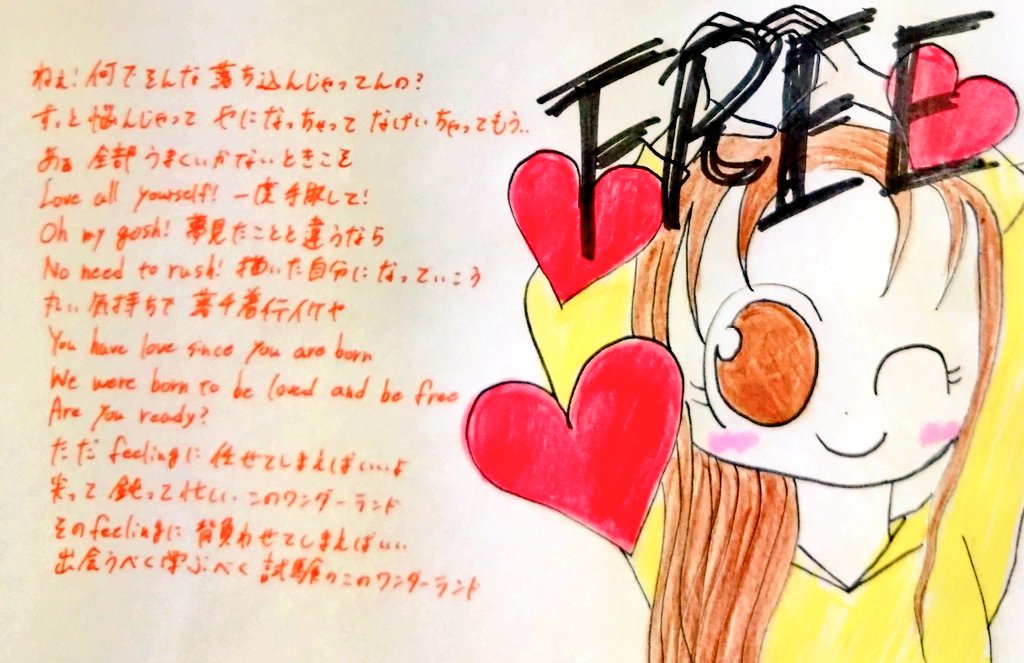 FREE
ねぇ!何でそんな落ち込んじゃってんの?
ずっと悩んじゃって やになっちゃって なげいちゃってもう..
ああ 全部うまくいかないときこそ
Love all yourself! 一度手離して!
Oh my gosh! 夢見たことと違うなら
No need to rush! 描いた自分になっていこう
丸い気持ちで 落チ着行イケヤ
You have love since you are born
We were born to be loved and be free
Are you ready?
ただ feelingに 任せてしまえばいいよ
尖って 鈍って 忙しい このワンダーランド
そのfeelingに 背負わせてしまえばいい
出会うべく学ぶべく 試験のこのワンダーランド